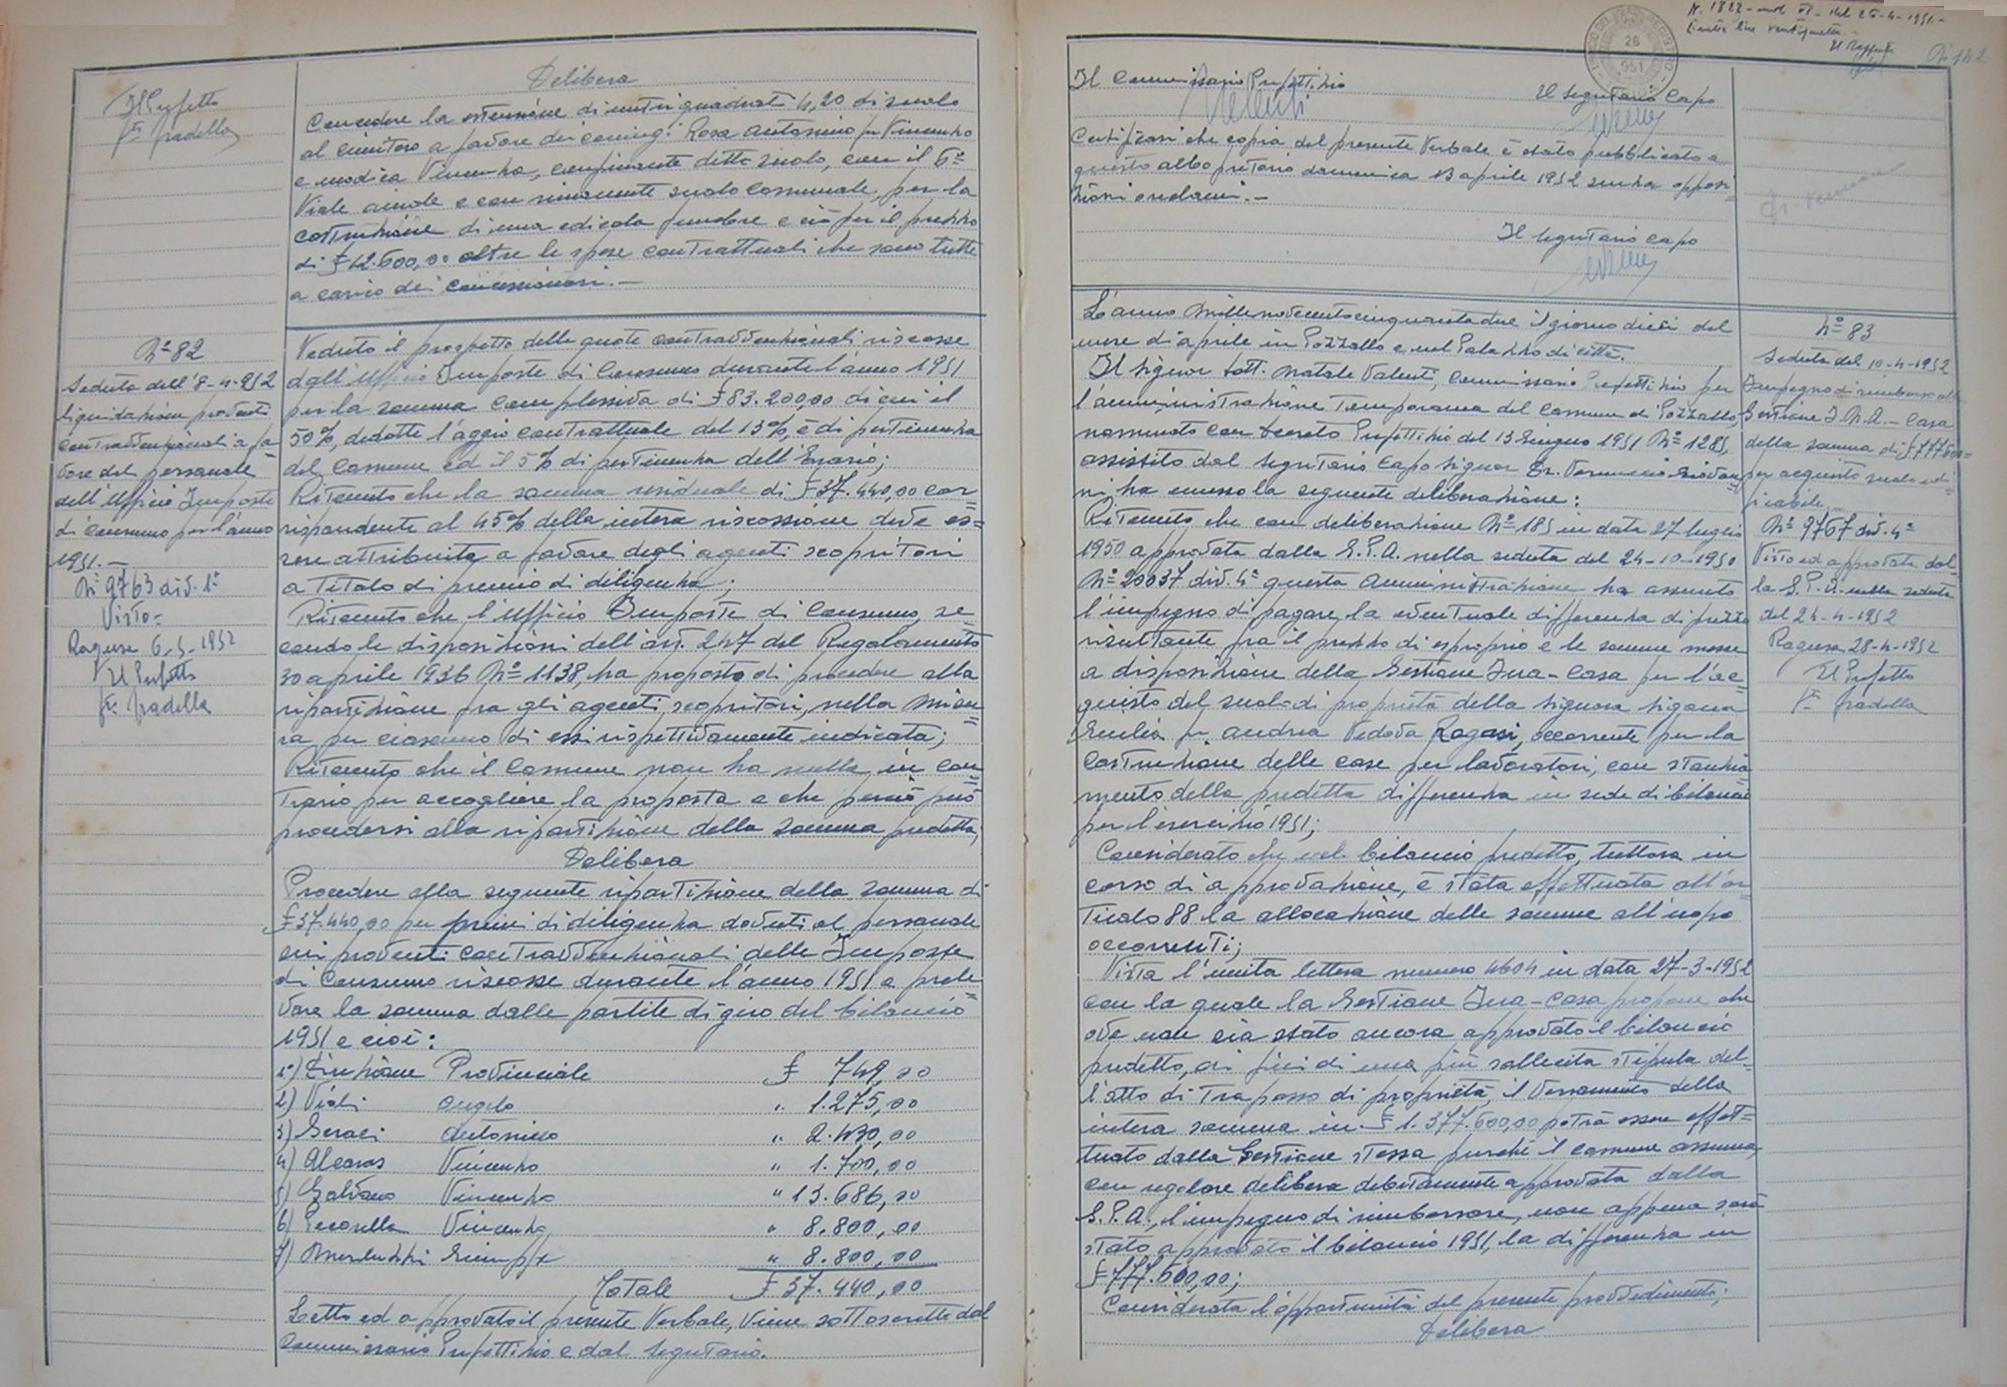 Il Prefetto
Fto Gradella
Delibera
Concedere la estensione di metri quadrati 4,20 di suolo
al cimitero a favore dei coniugi Rosa Antonino fu Vincenzo
e Modica Vincenza, confinante detto suolo, con il 6°
Viale anole e con rimanente suolo comunale, per la
costruzione di una edicola funebre e ciò per il prezzo
di £ 12.600,00 oltre le spese contrattuali che sono tutte
a carico dei concessionari.-
N° 82
Seduta dell'8-4-952
liquidazione proventi
contravvenzionali a fa=
vore del personale
dell'Ufficio Imposte
di consumo per l'anno
1951.-
N° 9763 div. 1a
Visto=
Ragusa 6-5-1952
Il Prefetto
Fto Gradella
Veduto il prospetto delle quote contravvenzionali riscosse
dall'Ufficio Imposte di Consumo durante l'anno 1951
per la somma complessiva di £ 83.200,00 di cui il
50%, dedotte l'aggio contrattuale del 13%, è di pertinenza
del Comune ed il 5% di pertinenza dell'Erario;
Ritenuto che la somma residuale di £ 37.440,00 cor=
rispondente al 45% della intera riscossione deve es=
sere attribuita a favore degli agenti scopritori
a titolo di premio di diligenza;
Ritenuto che l'Ufficio Imposte di Consumo, se
condo le disposizioni dell'art. 247 del Regolamento
30 aprile 1936 N° 1138, ha proposto di procedere alla
ripartizione fra gli agenti, scopritori, nella misu=
ra per ciascuno di essi rispettivamente indicata;
Ritenuto che il Comune non ha nulla in con=
trario per accogliere la proposta e che perciò può
procedersi alla ripartizione della somma predetta;
Delibera
Procedere alla seguente ripartizione della somma di
£ 37.440,00 per premi di diligenza dovuti al personale
sui proventi contravvenzionali delle Imposte
di Consumo riscosse durante l'anno 1951 e prele=
vare la somma dalle partite di giro del bilancio
1951 e cioè:
1) Direzione Provinciale £ 749,00
2) Vidi Angelo " 1.275,00
3) Geraci Antonino " 2.430,00
4) Vincenzo " 1.700,00
5) Galvano Vincenzo " 13.686,00
6) Pecorella Vincenzo " 8.800,00
7) Giuseppe " 8.800,00
Totale £ 37.440,00
Letto ed approvato il presente Verbale, viene sottoscritto dal
Commissario Prefettizio e dal Segretario.
N. 1822 - mod VI - del 26-4-1951.-
26
951
142
Il Commissario Prefettizio
Valenti
Il Segretario Capo
Certificasi che copia del presente Verbale è stato pubblicato a
questo albo pretorio domenica 13 aprile 1952 senza opposi=
zioni o reclami.-
Il Segretario Capo
L'anno millenovecentocinquantadue il giorno dieci del
mese di aprile in Pozzallo e nel Palazzo di città.
Il Signor Dott. Natale Valenti, Commissario Prefettizio per
l'amministrazione temporanea del Comune di Pozzallo,
nominato con Decreto Prefettizio del 13 Giugno 1951 N° 1285,
assistito dal Segretario Capo Signor Dr. Vermiccio Giovan=
ni, ha emesso la seguente deliberazione:
Ritenuto che con deliberazione N° 185 in data 27 luglio
1950 approvata dalla G.P.A. nella seduta del 24-10-1950
N° 20037 div. 4a questa Amministrazione ha assunto
l'impegno di pagare la eventuale differenza di prezzo
risultante fra il prezzo di esproprio e le somme messe
a disposizione della Gestione Ina-Casa per l'ac=
quisto del suolo di proprietà della Signora Sigona
Emilia fu Andrea Vedova Ragusi, occorrente per la
costruzione delle case per lavoratori, con stanzia=
mento della predetta differenza in sede di bilancio
per l'esercizio 1951;
Considerato che nel bilancio predetto, tuttora in
corso di approvazione, è stata effettuata all'ar
ticolo 88 la allocazione delle somme all'uopo
occorrenti;
Vista l'unita lettera numero 4604 in data 27-3-1952
con la quale la Gestione Ina-Casa propone che
ove non sia stato ancora approvato il bilancio
predetto, ai fini di una più sollecita stipula del=
l'atto di trapasso di proprietà, il versamento della
intera somma in £ 1.377.600,00 potrà essere effet=
tuato dalla Gestione stessa purché il comune assuma,
con regolare delibera debitamente approvata dalla
G.P.A., l'impegno di rimborsare, non appena sarà
stato approvato il bilancio 1951, la differenza in
£ 777.600,00;
Considerata l'opportunità del presente provvedimento;
Delibera
N° 83
Seduta del 10-4-1952
Impegno di rimborso alla
Gestione I.N.A.-Casa
della somma di £ 777.600=
per acquisto suolo edi=
ficabile
N° 9767 div. 4a
Visto ed approvato dal=
la G.P.A. nella seduta
del 24-4-1952
Ragusa 28-4-1952
Il Prefetto
Fto Gradella